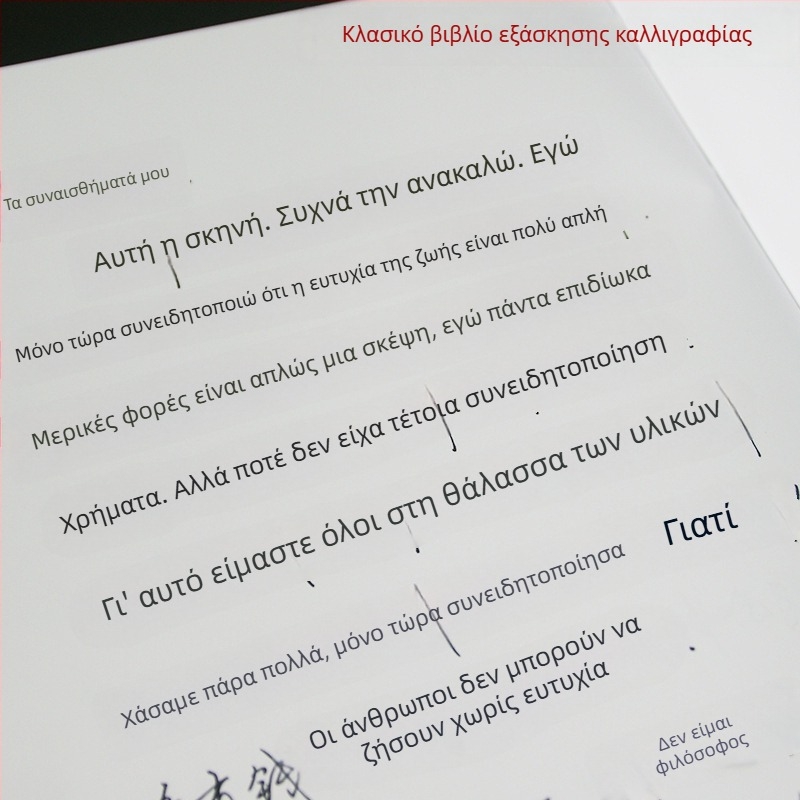 Κλασικό βιβλίο εξάσκησης καλλιγραφίας
Τα συναισθήματά μου
Αυτή η σκηνή. Συχνά την ανακαλώ. Εγώ
Μόνο τώρα συνειδητοποιώ ότι η ευτυχία της ζωής είναι πολύ απλή
Μερικές φορές είναι απλώς μια σκέψη, εγώ πάντα επιδίωκα
Χρήματα. Αλλά ποτέ δεν είχα τέτοια συνειδητοποίηση
Γι' αυτό είμαστε όλοι στη θάλασσα των υλικών
Γιατί
Χάσαμε πάρα πολλά, μόνο τώρα συνειδητοποίησα
Οι άνθρωποι δεν μπορούν να
ζήσουν χωρίς ευτυχία
Δεν είμαι
φιλόσοφος